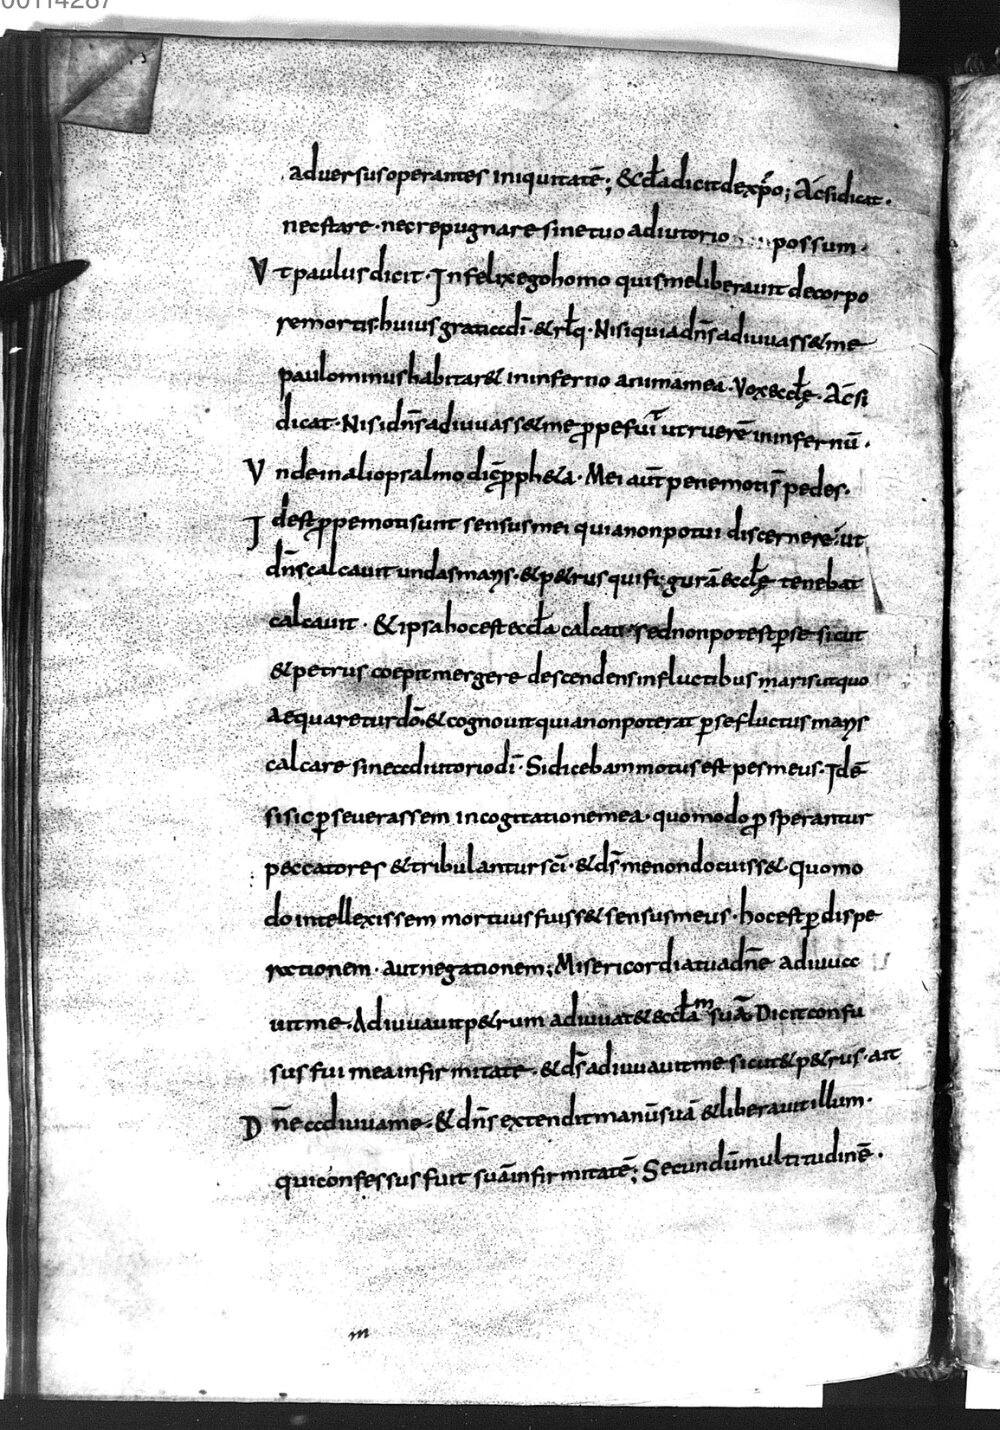 00114287
adversus operantes iniquitatē; & eccła dicit de xp̄o; Ac̄ si dicat·
nec stare· nec repugnare sine tuo adiutorio possum·
Vt paulus dicit· Infelix ego homo quis me liberavit de corpo
re mortis huius gratia dī· & rłq· Nisi quia dn̄s adiuvass& me
paulominus habitar& in inferno anima mea· Vox ecclę̄· Ac̄ si
dicat· Nisi dn̄s adiuvass& me p̄pe fuit̄ ut ruerē in infernū·
Vnde in alio psalmo dic̄ p̄ph&a· Mei aut̄ pene motis̄ pedes·
Id est p̄pe moti sunt sensus mei quia non potui discernere· ut
dn̄s calcavit undas marıs· & p&rus qui figurā ecclę̄ tenebat
calcavit· & ipsa hoc est eccła calcat· sed non potest p̱ se sicut
& petrus coepit mergere descendens in fluctibus maris ut quo
aequaretur dō· & cognovit quia non poterat p̱ se fluctus maris
calcare sine adiutorio dī· Si dicebam motus est pes meus· Idē
si sic p̱severassem in cogitatione mea· quomodo p̄sperantur
peccatores & tribulantur sc̄i· & ds̄ me non docuiss&· Quomo
do intellexissem mortuus fuiss& sensus meus· hoc est p̱ dispe
rationem· aut negationem; Misericordia tua dn̄e adiuva
vit me· Adiuvavit p&rum adiuvat & eccłam suā· Dicit confu
sus fui mea infirmitate· & ds̄ adiuvavit me sicut & p&rus· ait
Dn̄e adiuva me· & dn̄s extendit manū suā & liberavit illum·
qui confessus fuit suā infirmitatē; Secundū multitudinē·
m